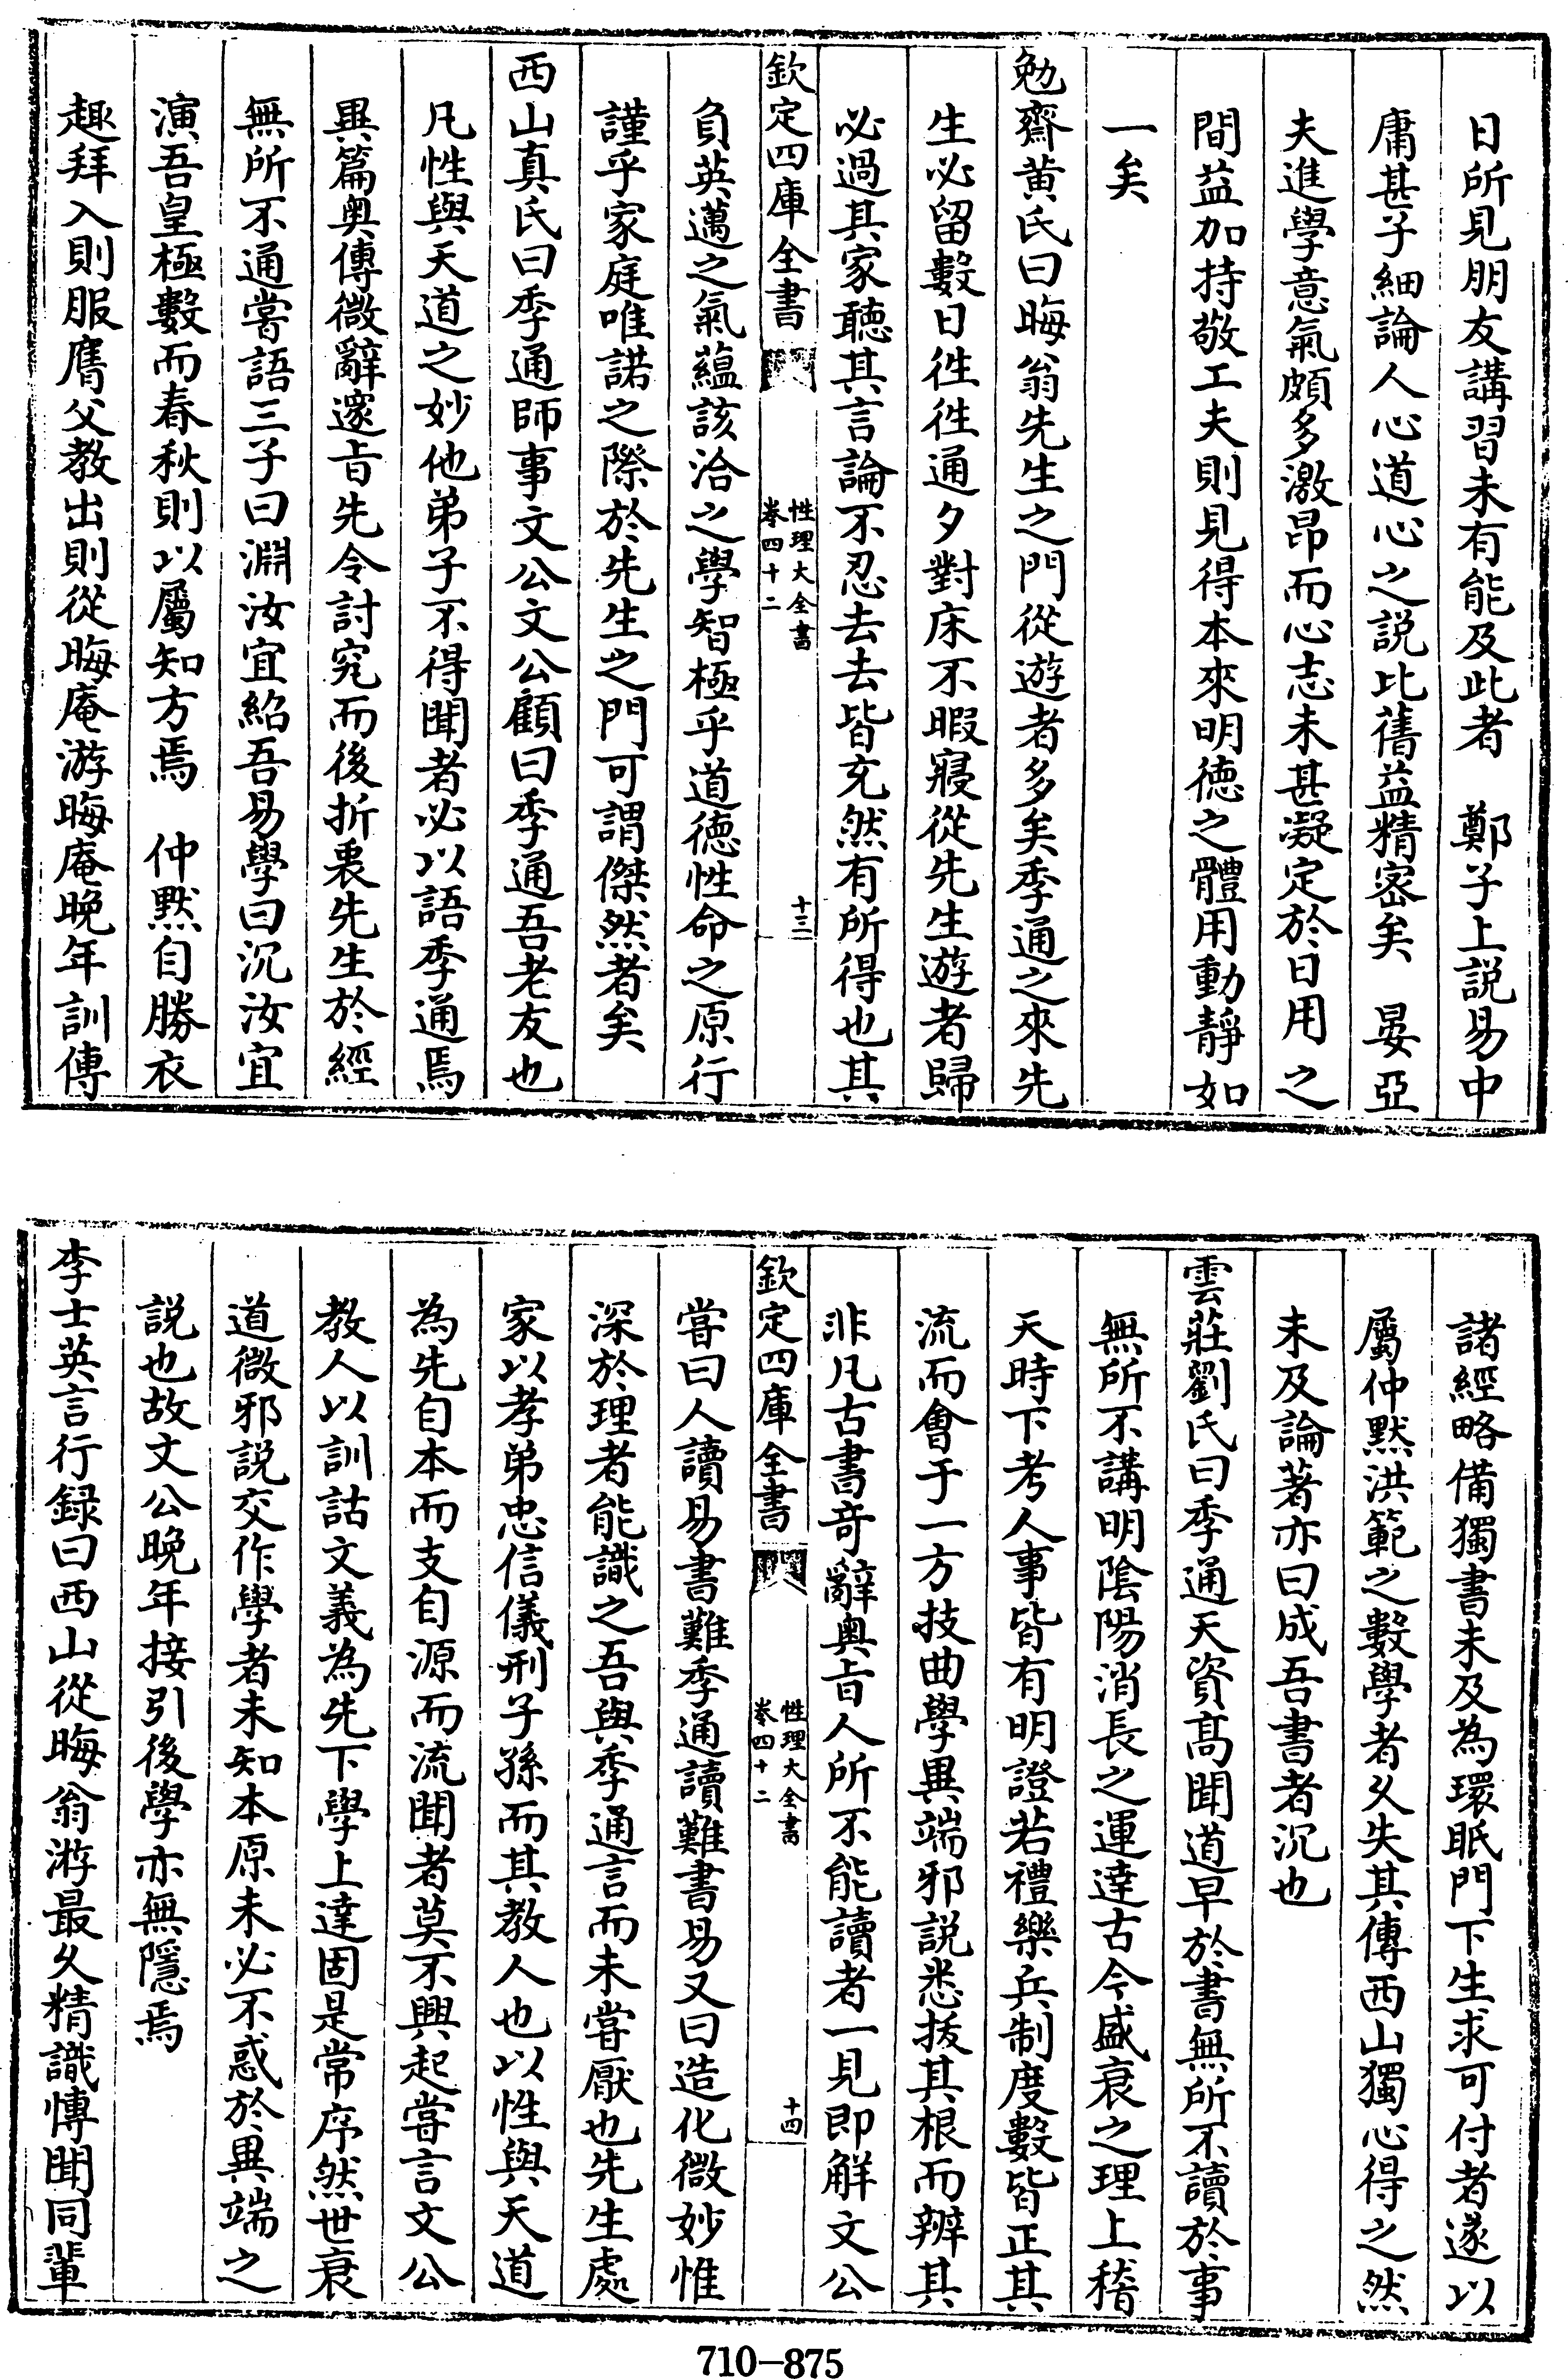 日所見朋友講習未有能及此者　鄭子上説易中
庸甚子細論人心道心之説比舊益精宻矣　晏亞
夫進學意氣頗多激昂而心志未甚凝定於日用之
間益加持敬工夫則見得本來明徳之體用動靜如
一矣
勉齋黄氏曰晦翁先生之門從遊者多矣季通之來先
生必留數日徃徃通夕對床不暇寢從先生遊者歸
必過其家聽其言論不忍去去皆充然有所得也其
欽定四庫全書
性理大全書
卷四十二
十三
負英邁之氣蘊該洽之學智極乎道徳性命之原行
謹乎家庭唯諾之際於先生之門可謂傑然者矣
西山真氏曰季通師事文公文公顧曰季通吾老友也
凡性與天道之妙他弟子不得聞者必以語季通焉
異篇奥傳微辭邃㫖先令討究而後折衷先生於經
無所不通嘗語三子曰淵汝宜紹吾易學曰沉汝宜
演吾皇極數而春秋則以屬知方焉　仲黙自勝衣
趣拜入則服膺父教出則從晦庵游晦庵晚年訓傳
諸經略備獨書未及為環眂門下生求可付者遂以
屬仲黙洪範之數學者乆失其傳西山獨心得之然
未及論著亦曰成吾書者沉也
雲莊劉氏曰季通天資髙聞道早於書無所不讀於事
無所不講明陰陽消長之運達古今盛衰之理上稽
天時下考人事皆有明證若禮樂兵制度數皆正其
流而會于一方技曲學異端邪説悉拔其根而辨其
非凡古書竒辭奥㫖人所不能讀者一見即解文公
欽定四庫全書
性理大全書
卷四十二
十四
嘗曰人讀易書難季通讀難書易又曰造化微妙惟
深於理者能識之吾與季通言而未嘗厭也先生處
家以孝弟忠信儀刑子孫而其教人也以性與天道
為先自本而支自源而流聞者莫不興起嘗言文公
教人以訓詁文義為先下學上達固是常序然世衰
道微邪説交作學者未知本原未必不惑於異端之
説也故文公晚年接引後學亦無隱焉
李士英言行録曰西山從晦翁游最乆精識愽聞同輩
710-875